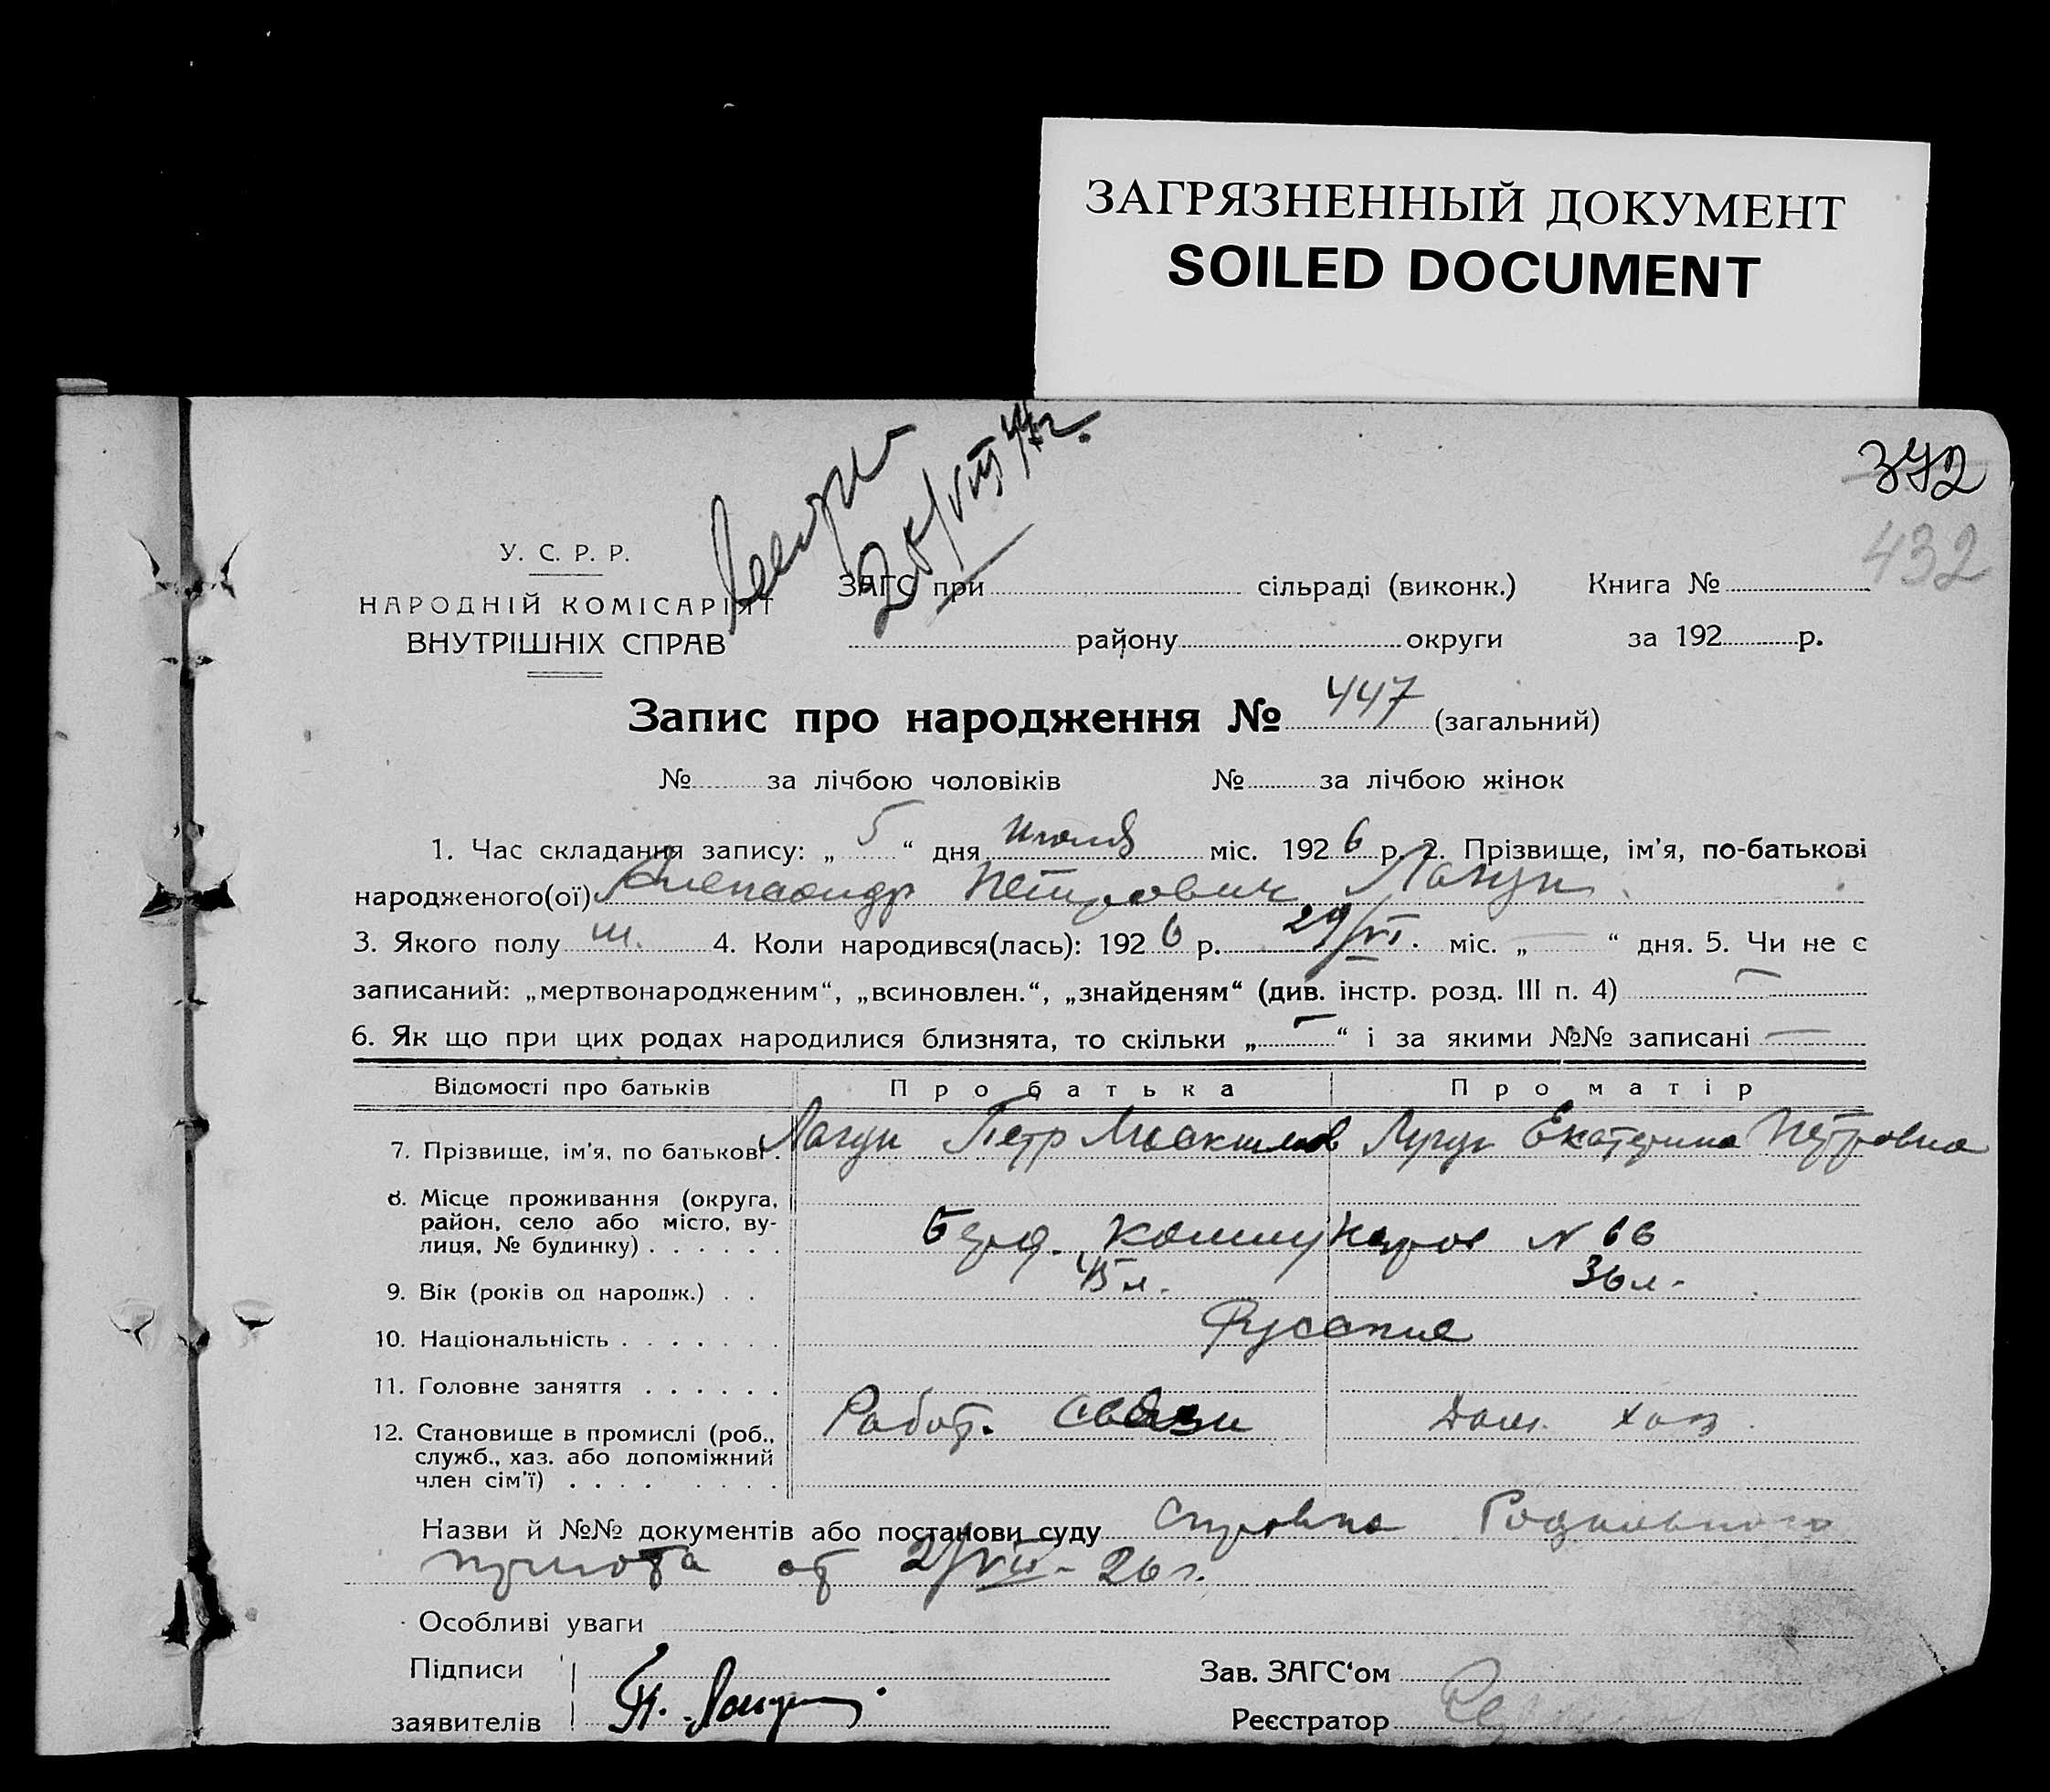 ЗАГРЯЗНЕННЫЙ ДОКУМЕНТ
SOILED DOCUMENT
372
432
28/VIII 44г.
У. С. Р. Р.
НАРОДНІЙ КОМІСАРІЯТ
ВНУТРІШНІХ СПРАВ
ЗАГС при сільраді (виконк.) Книга №
району округи за 192 р.
Запис про народження № 447 (загальний)
№ за лічбою чоловіків № за лічбою жінок
1. Час складання запису: „ 5 “ дня Июля міс. 1926 р. 2. Прізвище, ім'я, по-батькові
народженого(ої) Александр Петрович Лагун
3. Якого полу м. 4. Коли народився(лась): 1926 р. 29/VI. міс. „ — “ дня. 5. Чи не є
записаний: „мертвонародженим“, „всиновлен.“, „знайденям“ (див. інстр. розд. III п. 4) —
6. Як що при цих родах народилися близнята, то скільки „ — “ і за якими №№ записані —
Відомості про батьків Про батька Про матір
7. Прізвище, ім'я, по батькові . Лагун Петр Лагун Екатерина Петровна
8. Місце проживання (округа,
район, село або місто, ву-
лиця, № будинку) . . . . . . Коммунаров N 66
9. Вік (років од народж.) . . 45 л. 36 л.
10. Національність . . . . . . . Русские
11. Головне заняття . . . . . .
Работ. связи Дом. хоз.
12. Становище в промислі (роб.,
служб., хаз. або допоміжний
член сім'ї) . . . . . . . .
Назви й №№ документів або постанови суду Справка Родильного
приюта от 2/VII - 26 г.
Особливі уваги
Підписи Зав. ЗАГС‘ом
заявителів П. Лагун. Реєстратор